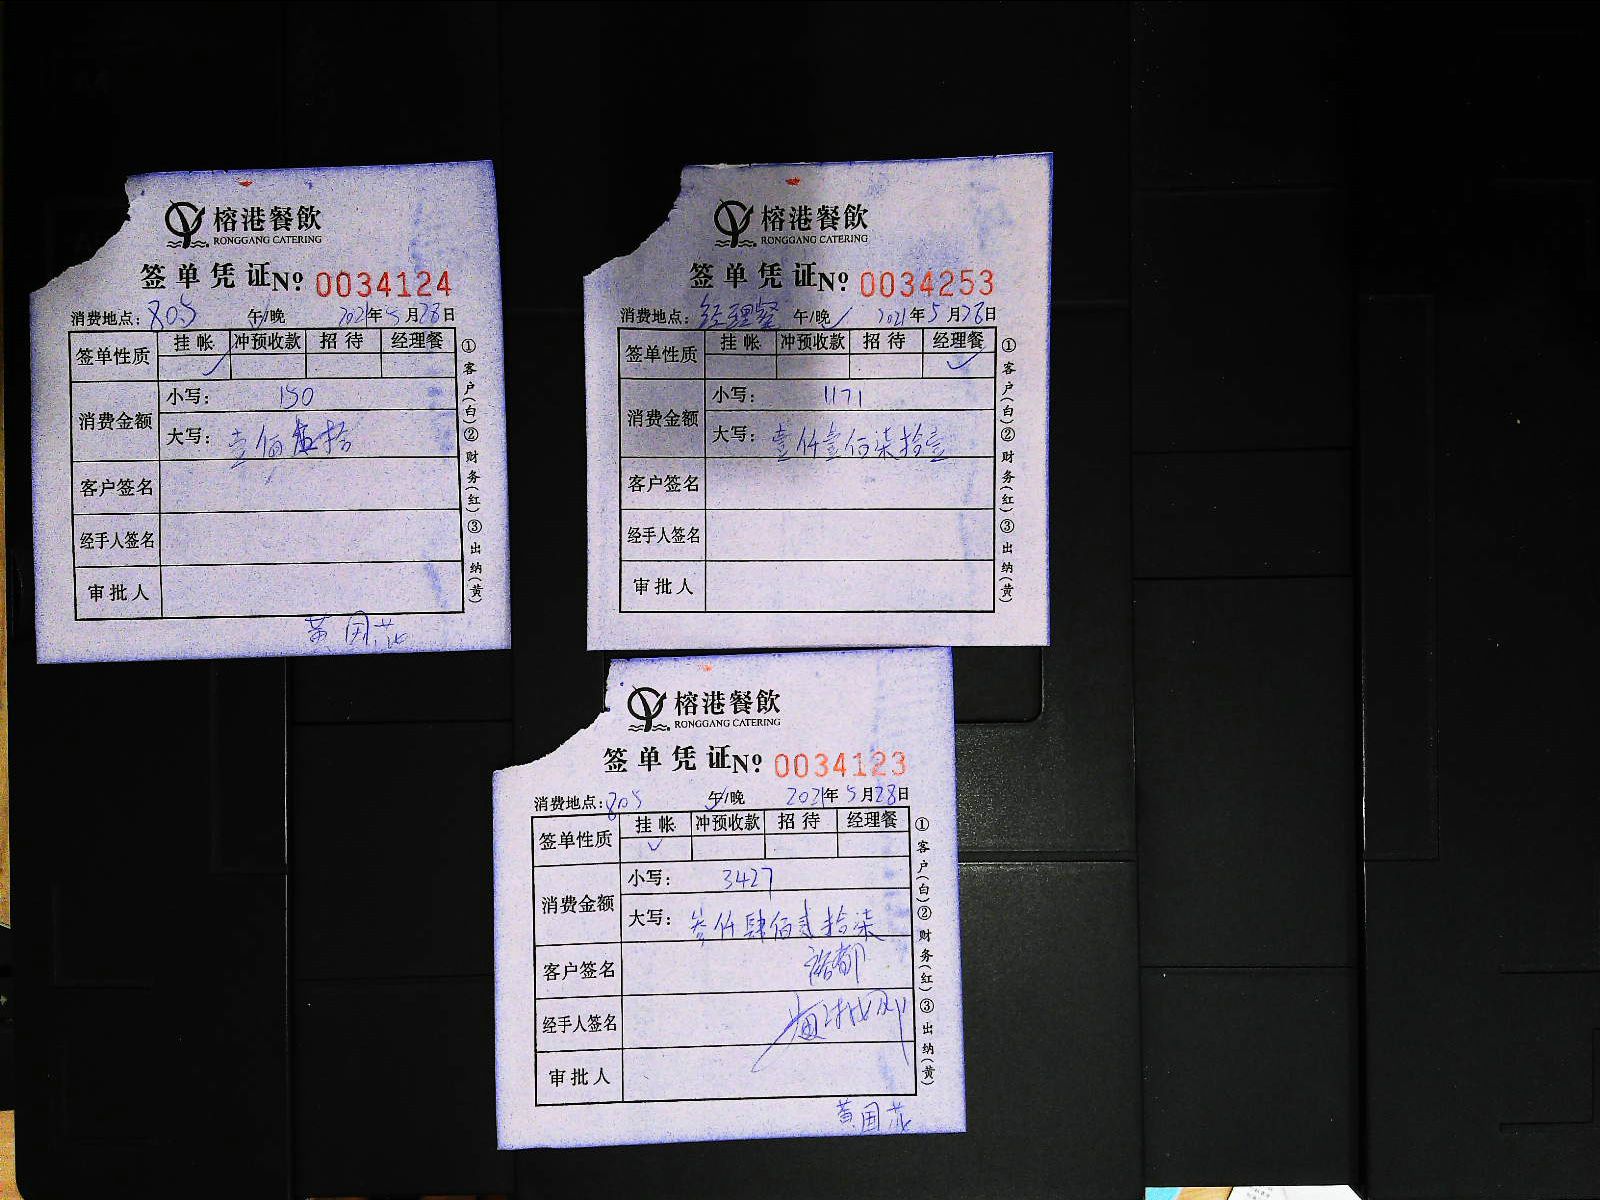 榕港餐飲
RONGGANG CATERING
签单凭证 No 0034124
消费地点: 805 午/晚 2021年5月28日
签单性质 挂帐 冲预收款 招待 经理餐
消费金额 小写: 150
大写: 壹佰伍拾
客户签名
经手人签名
审批人
黄国
①客户(白)②财务(红)③出纳(黄)
榕港餐飲
RONGGANG CATERING
签单凭证 No 0034253
消费地点: 经理餐 午/晚 2021年5月28日
签单性质 挂帐 冲预收款 招待 经理餐
消费金额 小写: 1171
大写: 壹仟壹佰柒拾壹
客户签名
经手人签名
审批人
①客户(白)②财务(红)③出纳(黄)
榕港餐飲
RONGGANG CATERING
签单凭证 No 0034123
消费地点: 805 午/晚 2021年5月28日
签单性质 挂帐 冲预收款 招待 经理餐
消费金额 小写: 3427
大写: 叁仟肆佰贰拾柒
客户签名
经手人签名
审批人
黄国
①客户(白)②财务(红)③出纳(黄)